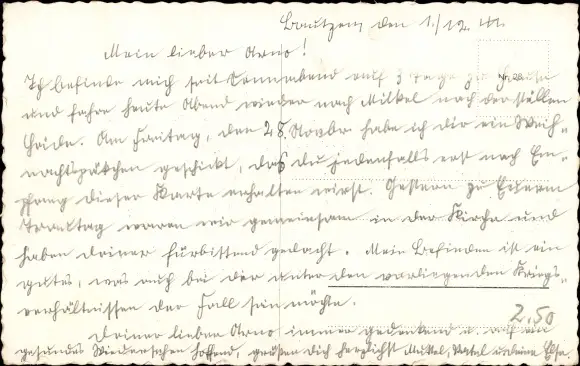 Bautzen, den 1./12. 41.
Mein lieber Arno!
Ich befinde mich seit Sonnabend auf 3 Tage zu Hause
Nr. 20
und fahre heute Abend wieder nach Milkel nach der stillen
Heide. Am Freitag, den 28. Novbr habe ich dir ein Weih-
nachtspäckchen geschickt, das du jedenfalls erst nach Em-
pfang dieser Karte erhalten wirst. Gestern zu Eurem
Trautag waren wir gemeinsam in der Kirche und
haben deiner fürbittend gedacht. Mein Befinden ist ein
gutes, was auch bei dir unter den vorliegenden Kriegs-
verhältnissen der Fall sein möchte.
2.50
Deiner lieber Arno immer gedenkend u. auf ein
gesundes Wiedersehen hoffend, grüßen dich herzlichst Muttel, Vatel u. deine Ilse.